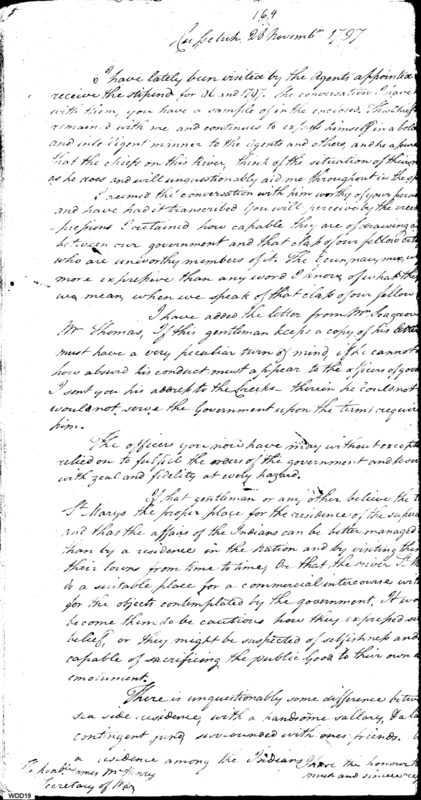 169
26 Novembr 1797
I have lately been visited by the Agents appointed
receive the stipend for 96 and 1797. The conversation I have
with them, you have a sample of in the enclosed. The chief
remained with me and continues to express himself in a bold
and intelligent manner to the agents and others, and he assures
that the chiefs on this River, think of the situation of their
as he does and will unquestionably aid me throughout in the
I deemed the conversation with him worthy of your perusal
and have had it transcribed You will perceive by the
pressions I retained how capable they are of drawing a
between our government and that class of our fellow
who are unworthy members of it. The
more expressive than any word I know, of what they
we mean, when we speak of that class of our fellow
I have added the letter from Mr. Seagrove
Mr. Thomas, If this gentleman keeps a copy of his letters
must have a very peculiar turn of mind, if he cannot
how absurd his conduct must appear to the officers of gov
I sent you his address to the Creeks therein he could not
would not serve the Government upon the terms require
him.
The officers you now have may without excepti
relied on to fulfil the orders of the government and to
with zeal and fidelity at every hazard.
If that gentleman or any other believe the
St. Marys the proper place for the residence of the superin
and that the affairs of the Indians can be better managed
than by a residence in the nation and by visiting them
their towns from time to time, Or that the river St. M
is a suitable place for a commercial intercourse with
for the objects contemplated by the government. It wo
become them to be cautious how they expressed such
belief, or they might be suspected of selfishness and
capable of sacrificing the public Good to their own
emolument.
There is unquestionably some difference betw
sea side residence, with a handsome sallary, & a la
contingent fund, surrounded with ones friends.
a residence among the Indians I have the honour
The honble. James McHenry much and sincere
Secretary of War
WDD19